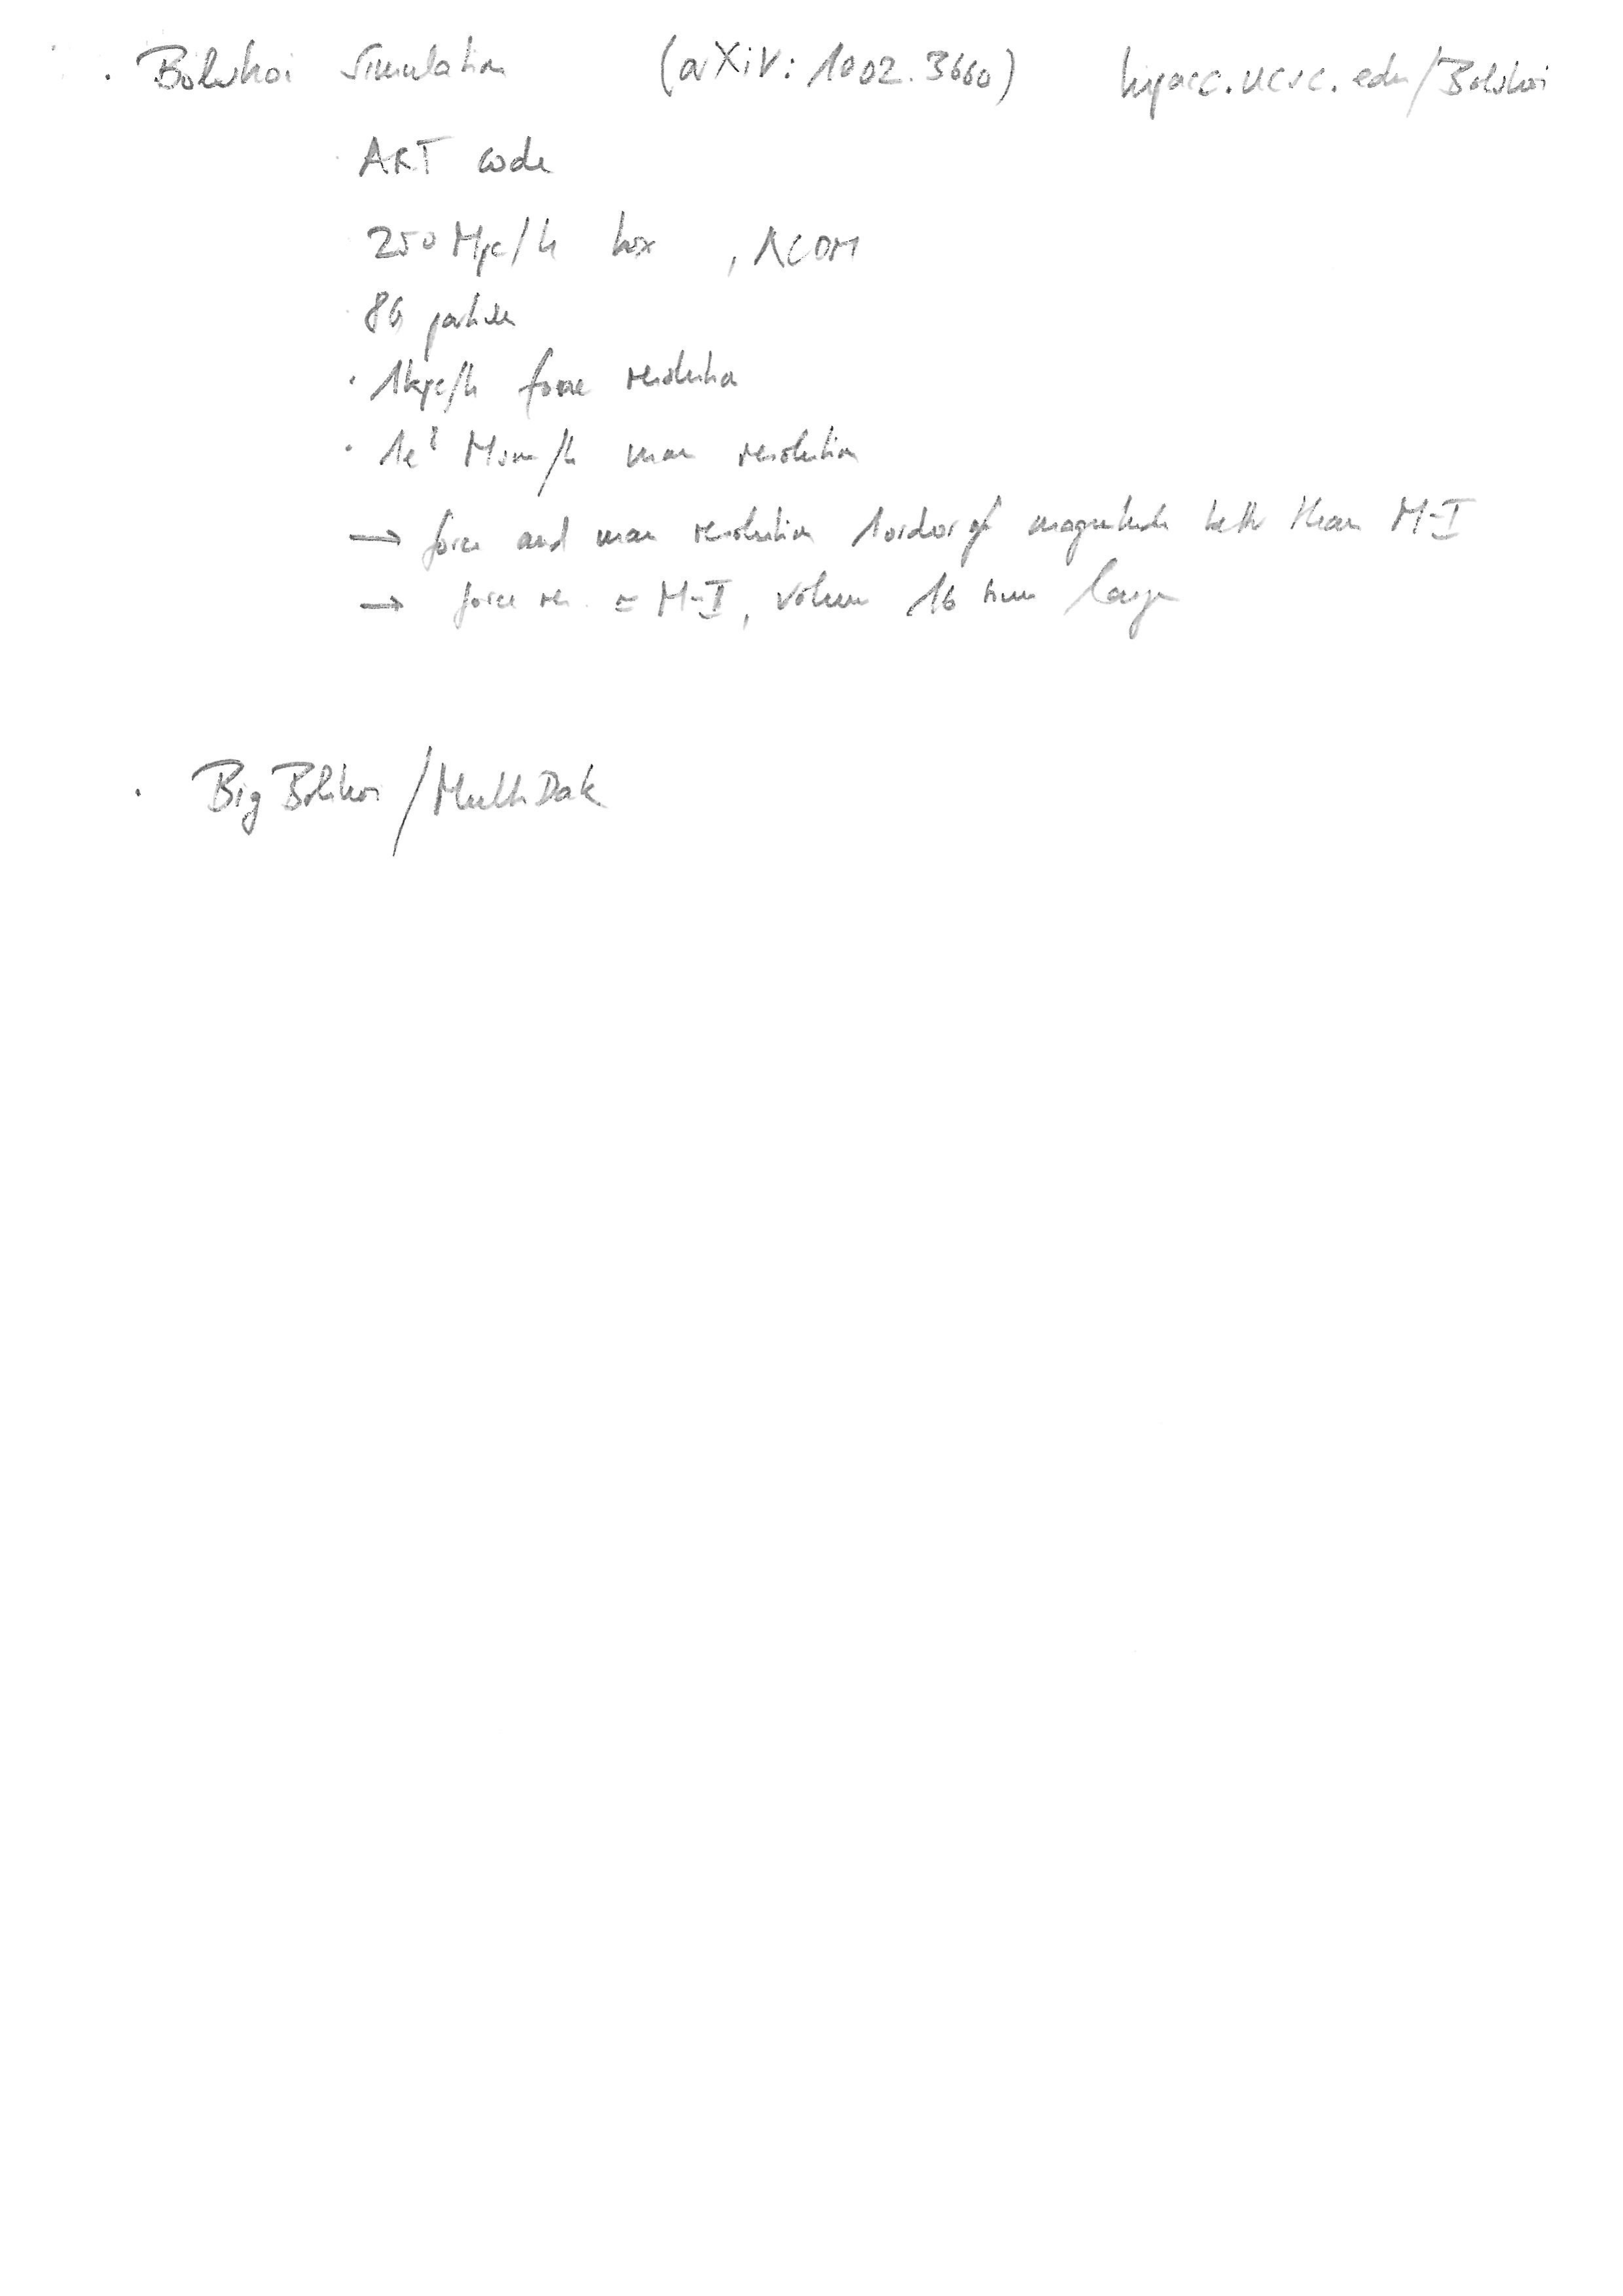 · Bolshoi Simulation (arXiV: 1002.3660) hipacc.ucsc.edu/Bolshoi
· ART code
· 250 Mpc/h box , ΛCDM
· 8G particles
· 1kpc/h force resolution
· 1e⁸ Msun/h mass resolution
→ force and mass resolution 1 order of magnitude better than M-I
→ force res. = M-II, volume 16 times larger
· Big Bolshoi / MultiDark